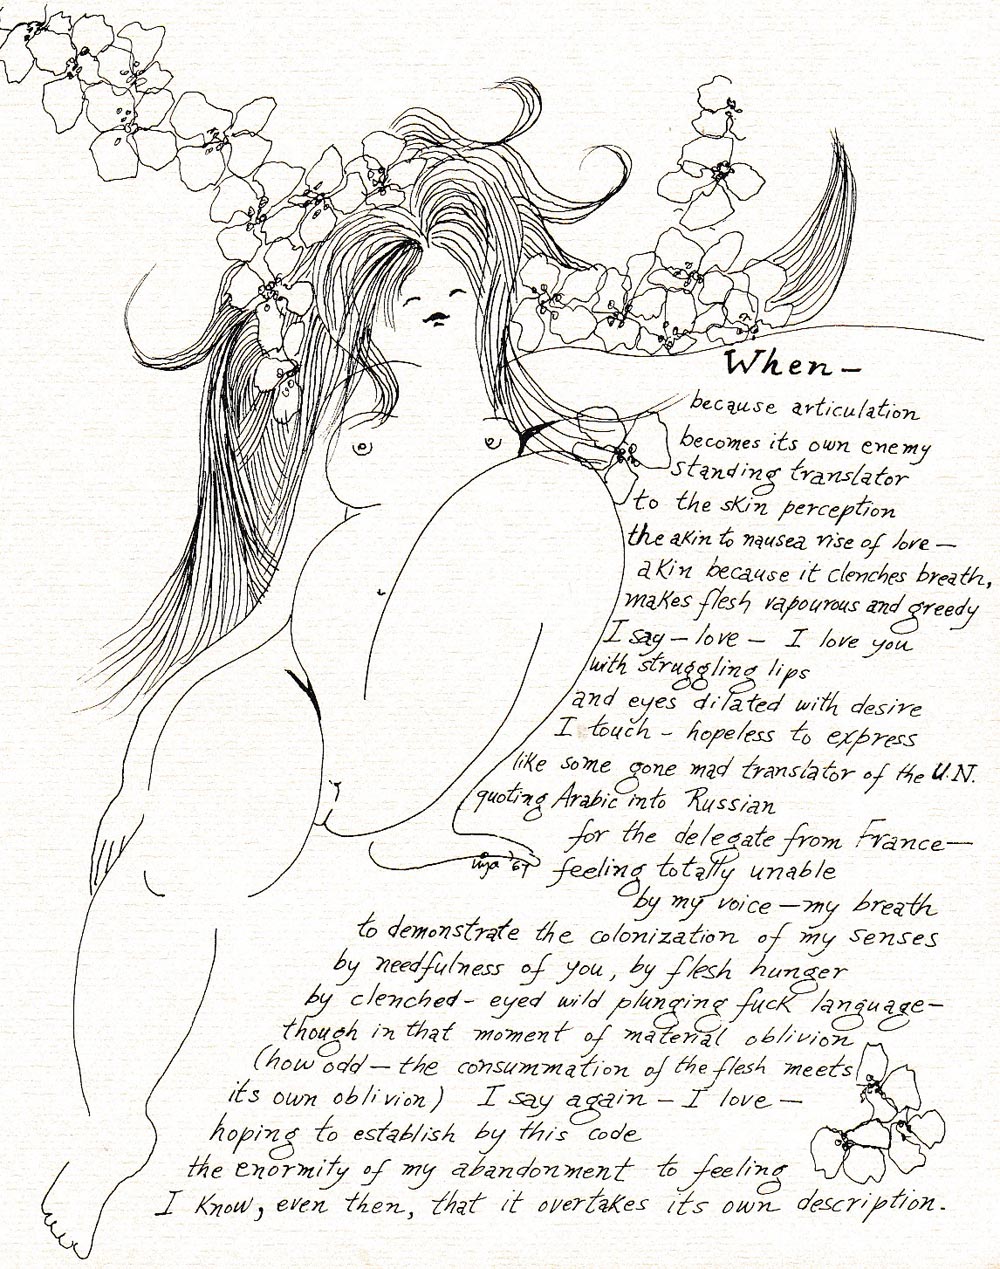 When —
because articulation
becomes its own enemy
standing translator
to the skin perception
the akin to nausea rise of love —
akin because it clenches breath,
makes flesh vapourous and greedy
I say — love — I love you
with struggling lips
and eyes dilated with desire
I touch - hopeless to express
like some gone mad translator of the U.N.
quoting Arabic into Russian
for the delegate from France —
feeling totally unable
by my voice — my breath
to demonstrate the colonization of my senses
by needfulness of you, by flesh hunger
by clenched-eyed wild plunging fuck language —
though in that moment of material oblivion
(how odd — the consummation of the flesh meets
its own oblivion) I say again — I love —
hoping to establish by this code
the enormity of my abandonment to feeling
I know, even then, that it overtakes its own description.